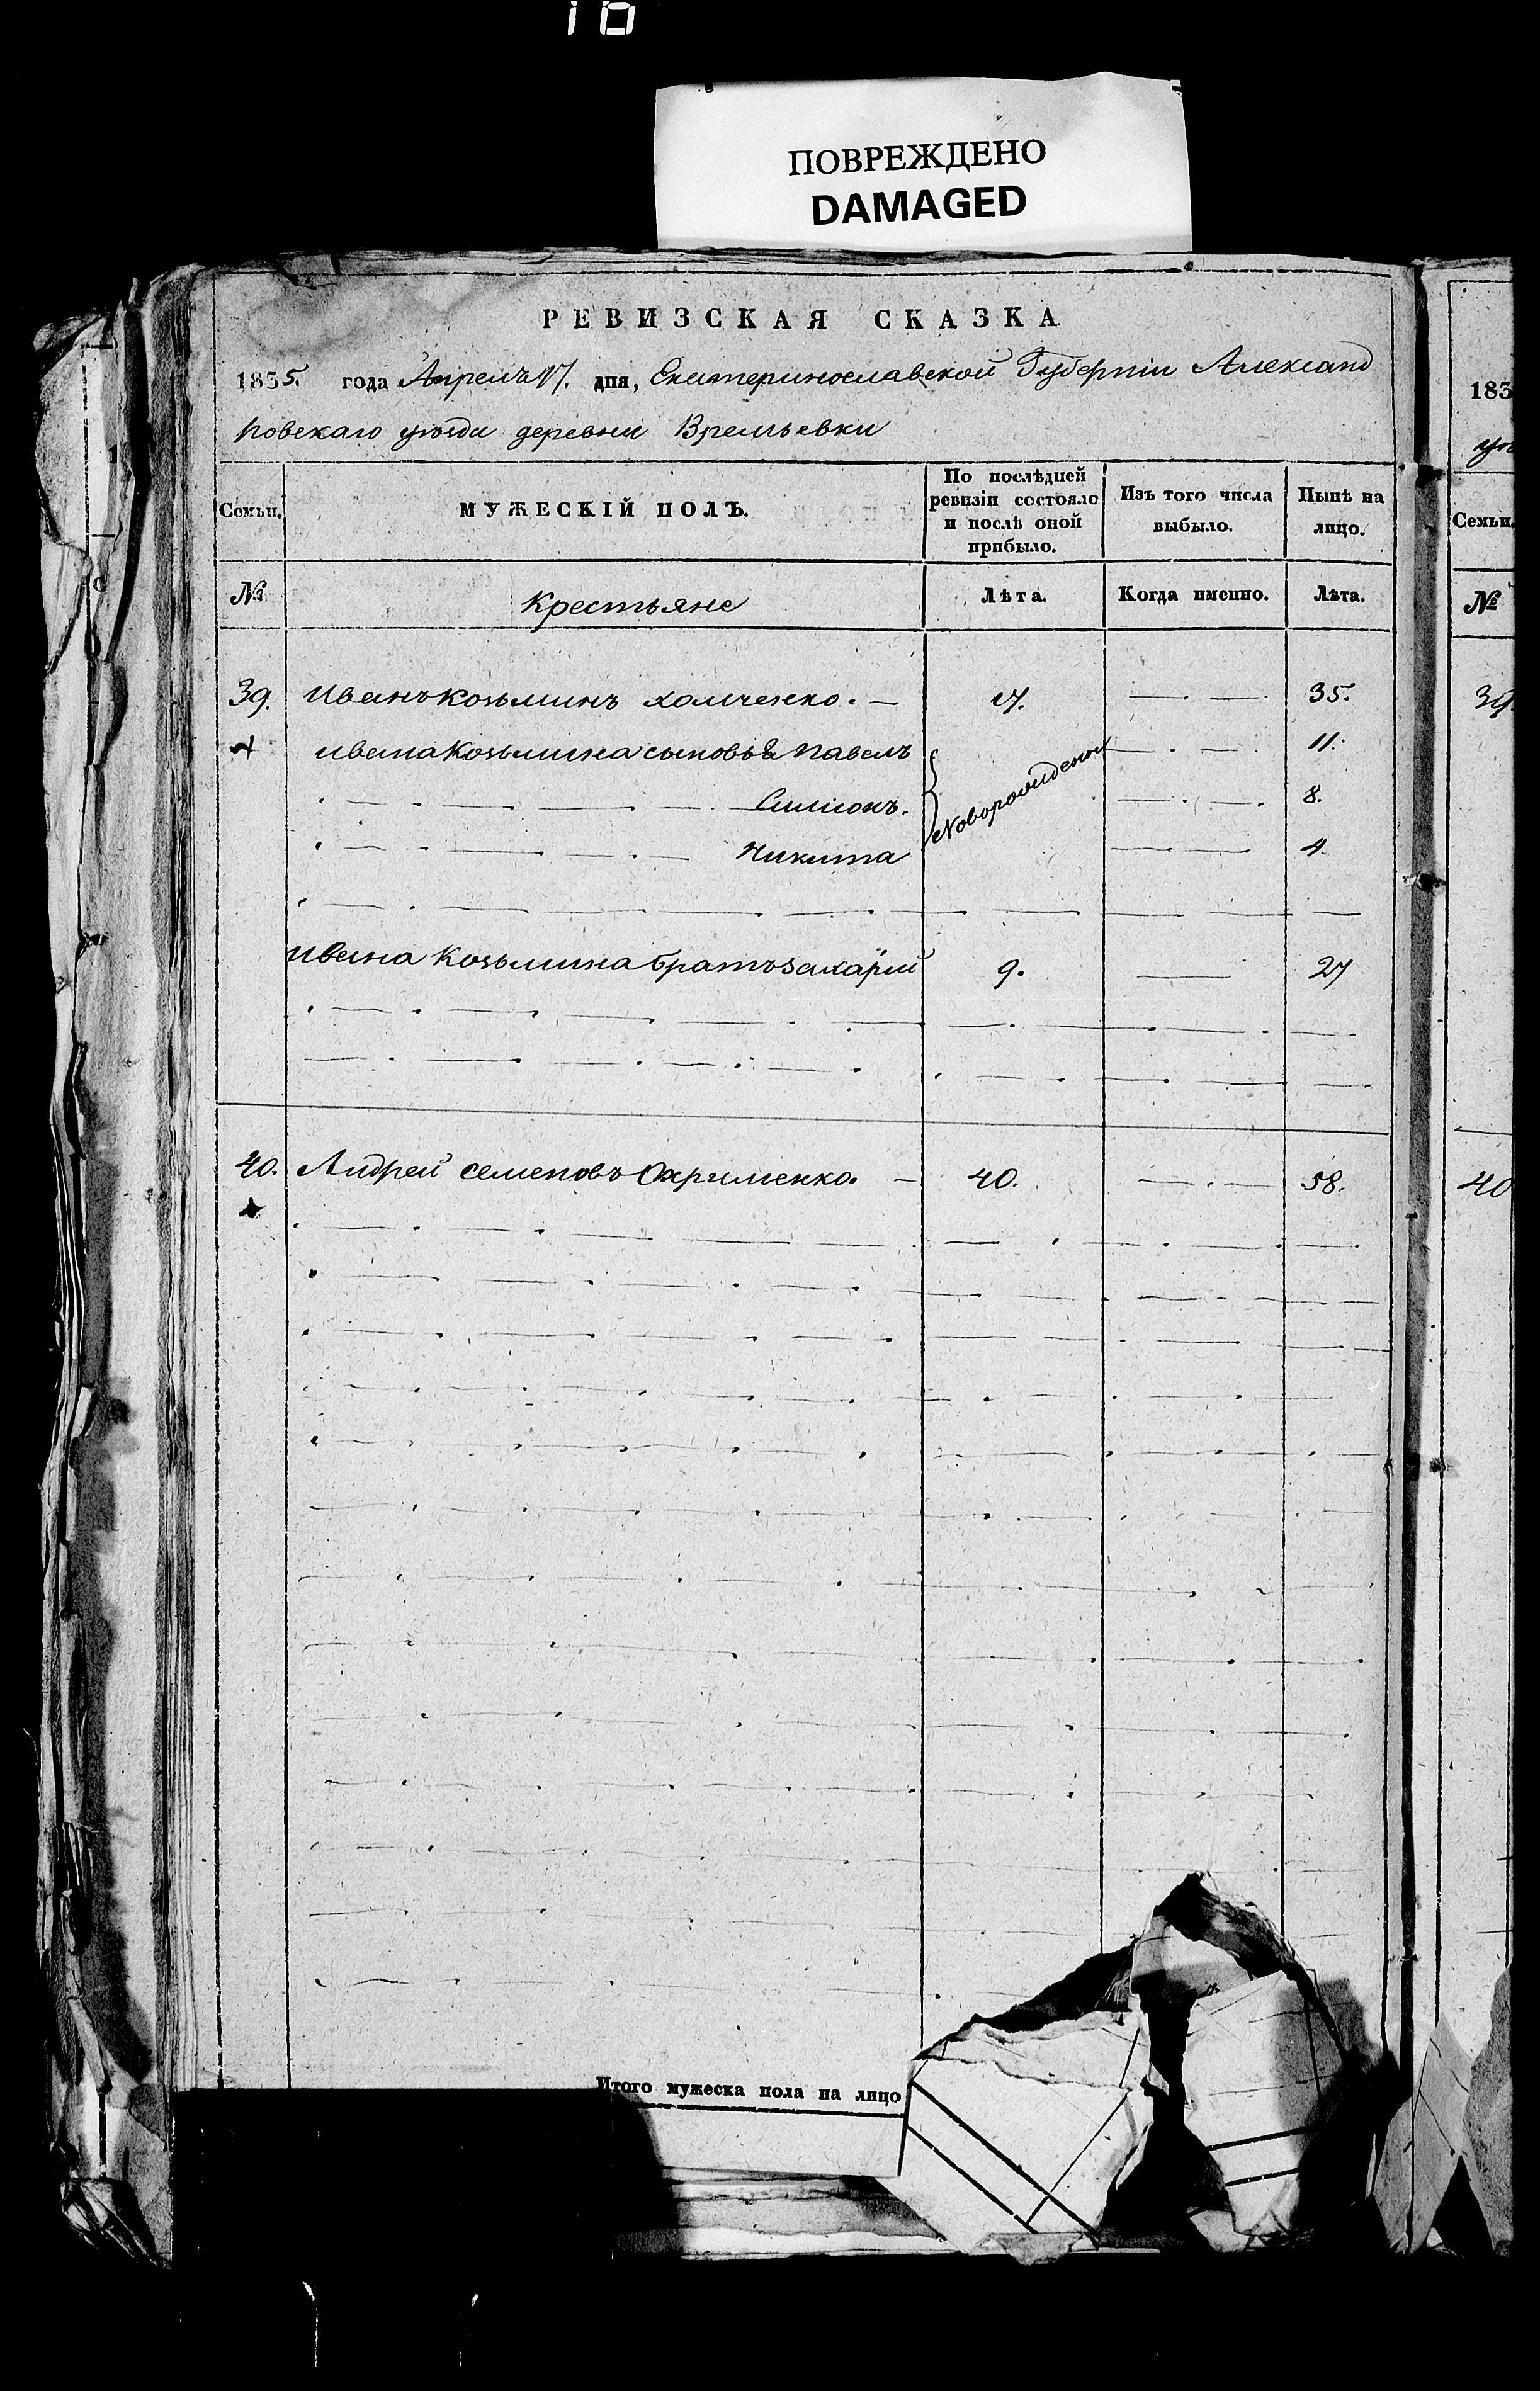 ПОВРЕЖДЕНО
DAMAGED
РЕВИЗСКАЯ СКАЗКА
1835. года Апреля 17. дня, Екатеринославской Губерніи Александ
ровскаго уѣзда деревни Времьевки
183
Семьи. МУЖЕСКІЙ ПОЛЪ. По послѣдней ревизіи состояло и послѣ оной прибыло. Изъ того числа выбыло. Нынѣ на лицо.
Семьи.
№ Крестьяне Лѣта. Когда именно. Лѣта.
№
39. Иванъ Козьминъ Хомченко. 17. 35.
39
Ивана Козьмина сыновья Павелъ Новорожденои 11.
Симіонъ. 8.
Никита 4
Ивана Козьмина братъ Захарій 9. 27
40. Андрей Семеновъ Охрименко. 40. 58.
40
Итого мужеска пола на лицо